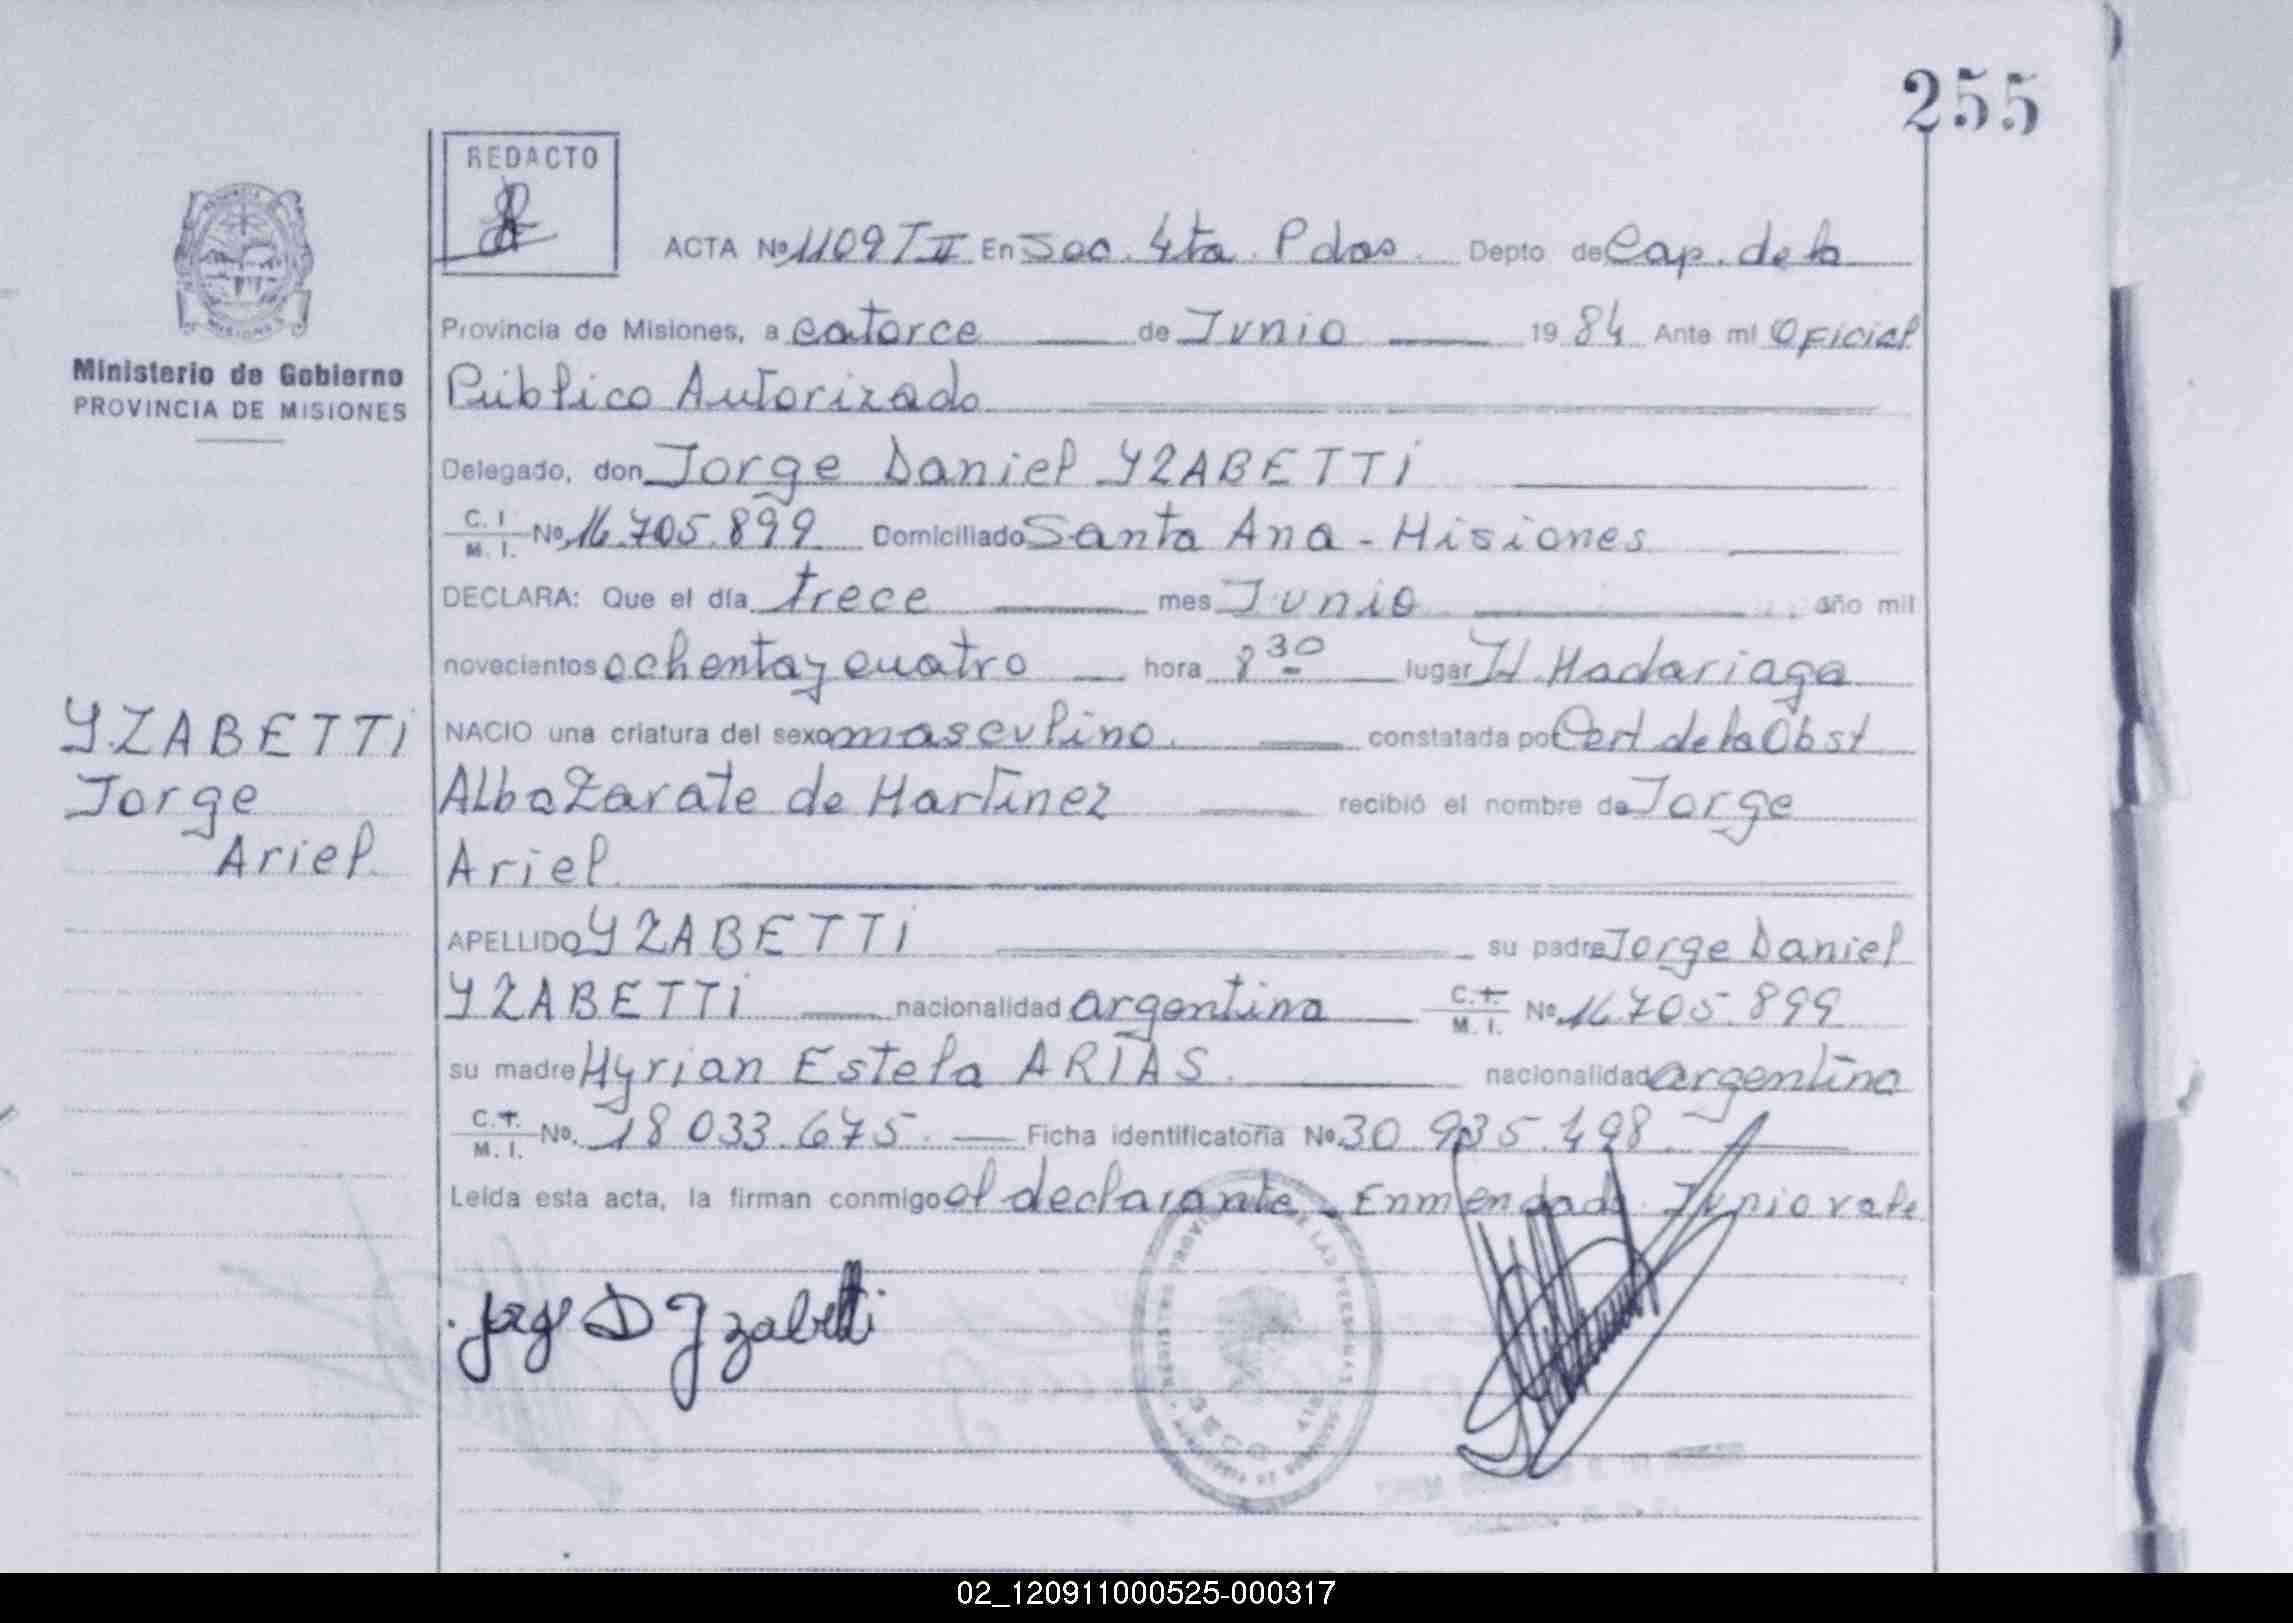 255
REDACTO
ACTA Nº 1109 T II En Sec. 4ta. Pdas. Depto de Cap. de la
Provincia de Misiones, a catorce de Junio 19 84 Ante mí Oficial
Ministerio de Gobierno
PROVINCIA DE MISIONES
Público Autorizado
Delegado, don Jorge Daniel YZABETTI
C. I. M. I. Nº 16.705.899 Domiciliado Santa Ana - Misiones
DECLARA: Que el día trece mes Junio año mil
novecientos ochenta y cuatro hora 8 30 lugar H. Madariaga
YZABETTI
Jorge
Ariel
NACIO una criatura del sexo masculino. constatada por Cert de la Obst
Alba Zarate de Martinez recibió el nombre de Jorge
Ariel.
APELLIDO YZABETTI su padre Jorge Daniel
YZABETTI nacionalidad argentina C. I. M. I. Nº 16.705.899
su madre Myrian Estela ARIAS. nacionalidad argentina
C. I. M. I. Nº. 18 033.675. Ficha identificatoria Nº 30.935.498
Leída esta acta, la firman conmigo el declarante. Enmendado Junio vale
Jorge D Yzabetti
02_120911000525-000317